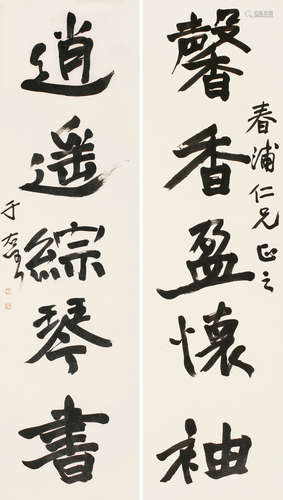 馨香盈懷袖
春浦仁兄正之
逍遥綜琴書
于右任